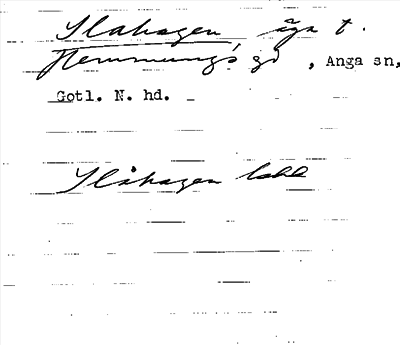 Slahagen, äga t.
Hemmungs gd, Anga sn,
Gotl. N. hd.
Slåhagen